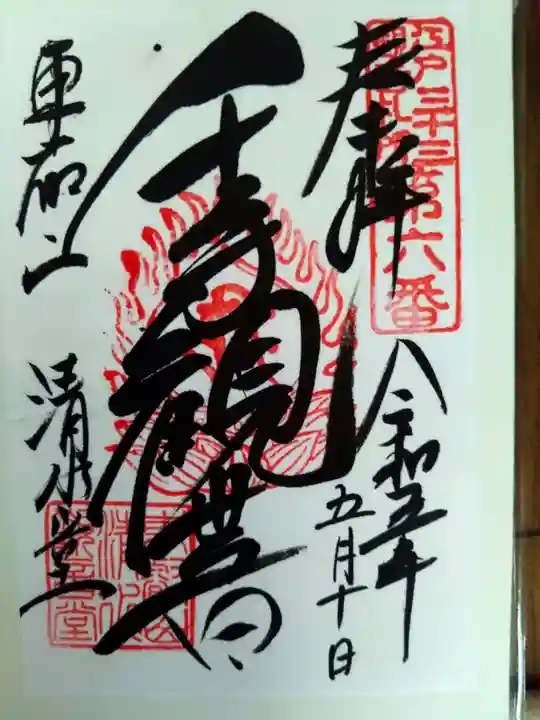 江戸三十三
第六番
奉拝
令和五年
五月十日
千手観世音
東叡山
清水堂